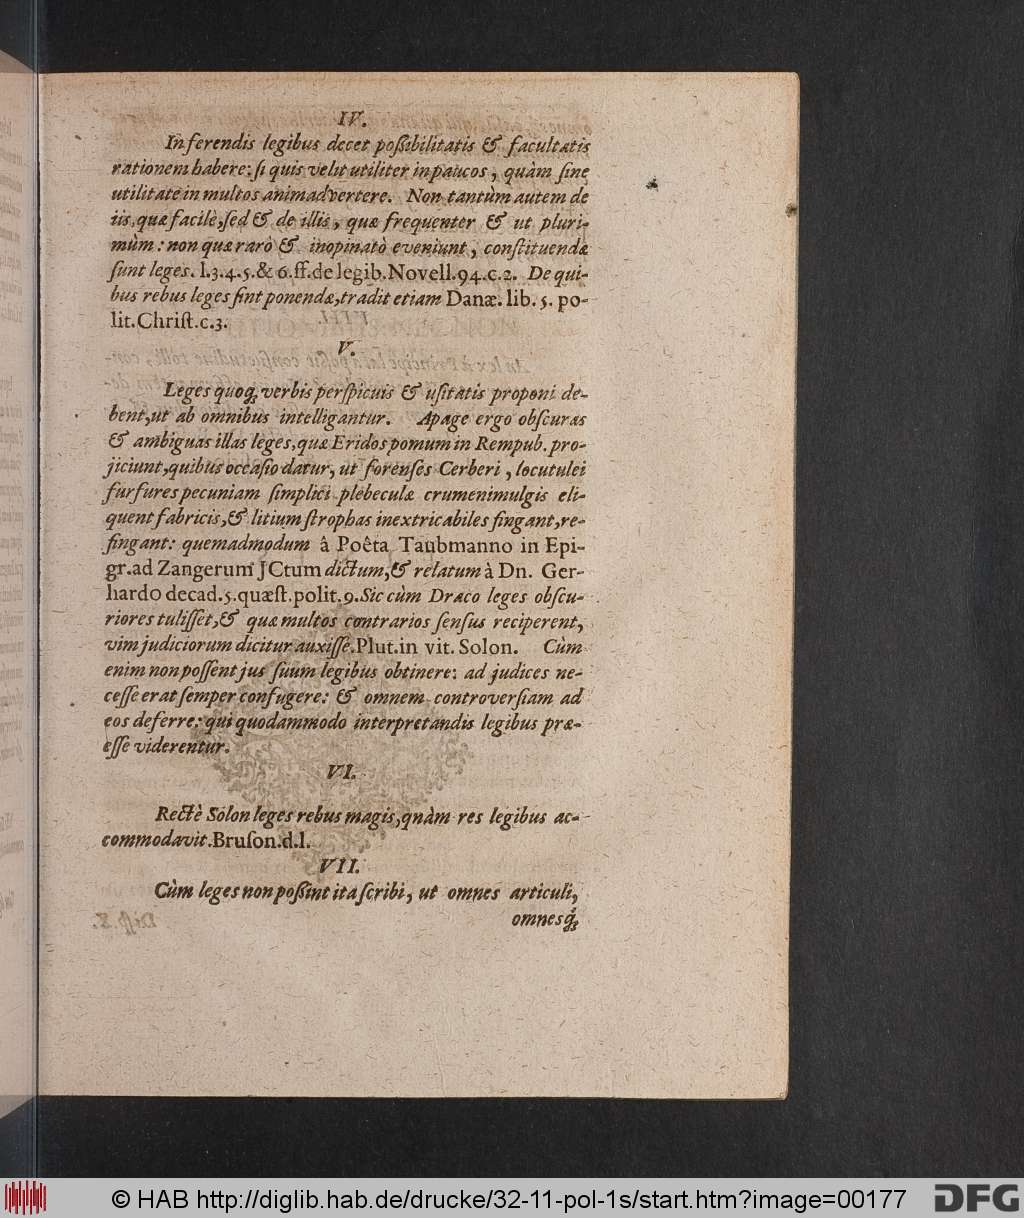 IV.
In ferendis legibus decet poßibilitatis & facultatis
rationem habere: si quis velit utiliter in paucos, quàm sine
utilitate in multos animadvertere. Non tantùm autem de
iis, quæ facilè, sed & de illis, quæ frequenter & ut pluri-
mùm: non quæ rarò & inopinatò eveniunt, constituendæ
sunt leges. l.3.4.5.& 6.ff.de legib.Novell.94.c.2. De qui-
bus rebus leges sint ponendæ, tradit etiam Danæ. lib. 5. po-
lit. Christ.c.3.
V.
Leges quoq; verbis perspicuis & usitatis proponi de-
bent, ut ab omnibus intelligantur. Apage ergo obscuras
& ambiguas illas leges, quæ Eridos pomum in Rempub. pro-
jiciunt, quibus occasio datur, ut forenses Cerberi, locutulei
furfures pecuniam simplici plebeculæ crumenimulgis eli-
quent fabricis, & litium strophas inextricabiles fingant, re-
fingant: quemadmodum â Poêta Taubmanno in Epi-
gr. ad Zangerum JCtum dictum, & relatum à Dn. Ger-
hardo decad.5.quæst.polit.9. Sic cùm Draco leges obscu-
riores tulisset, & quæ multos contrarios sensus reciperent,
vim judiciorum dicitur auxisse. Plut.in vit. Solon. Cùm
enim non possent jus suum legibus obtinere: ad judices ne-
cesse erat semper confugere: & omnem controversiam ad
eos deferre: qui quodammodo interpretandis legibus præ-
esse viderentur.
VI.
Rectè Solon leges rebus magis, quàm res legibus ac-
commodavit. Bruson.d.l.
VII.
Cùm leges non poßint ita scribi, ut omnes articuli,
omnesq;
© HAB http://diglib.hab.de/drucke/32-11-pol-1s/start.htm?image=00177
DFG